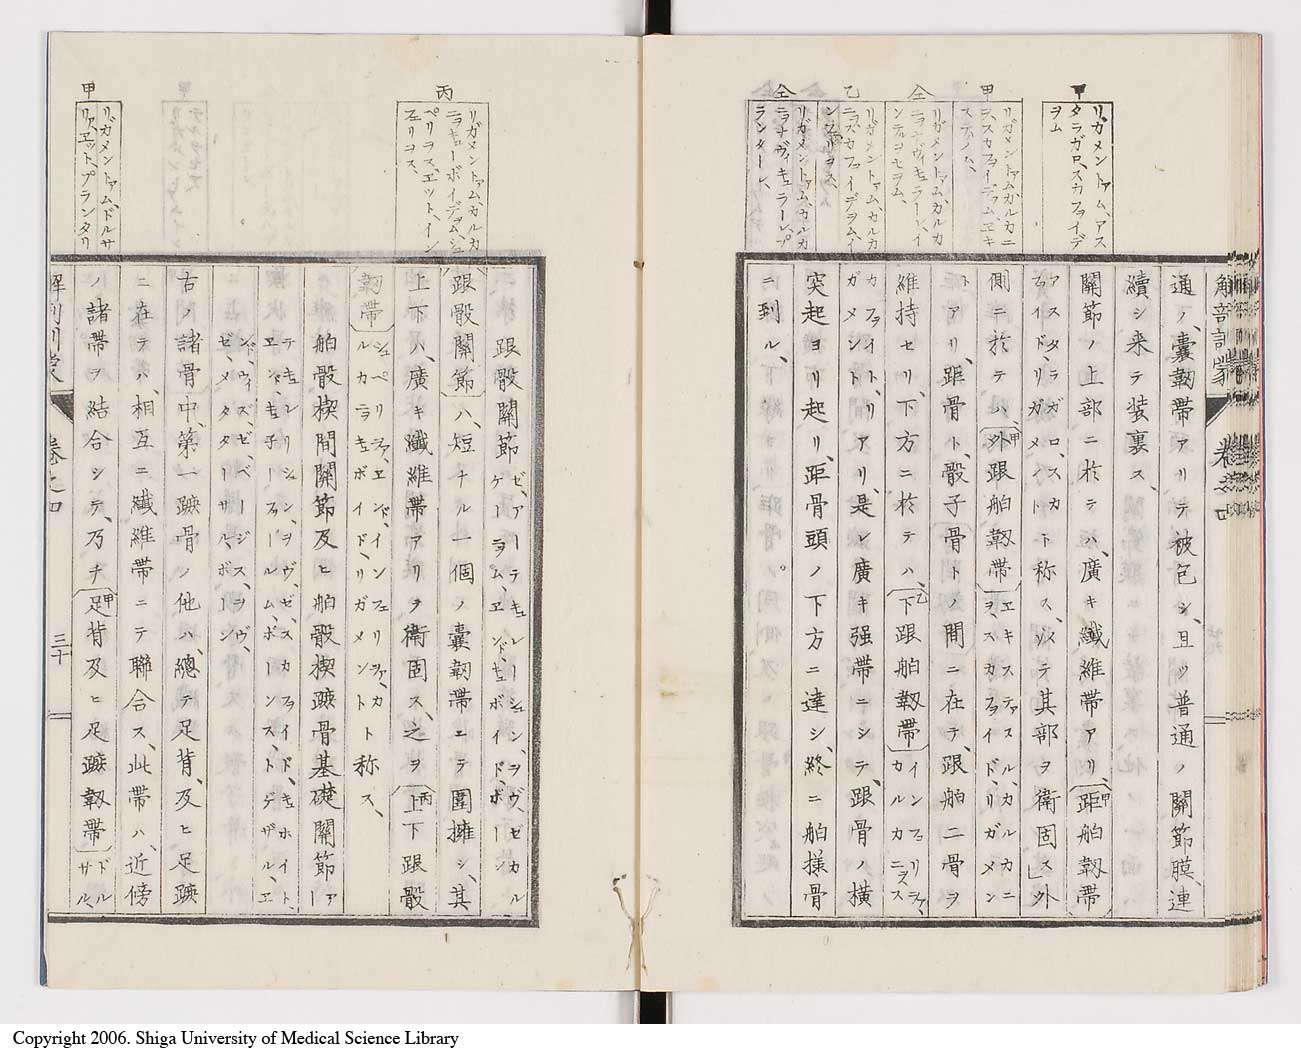 甲
リガメントァム、アス
タラガロ、スカファイデ
ヲム
甲
リガメントァム、カルカニ
ヲ、スカファイデァム、エキ
ステノム、
仝
リガメントァム、カルカ
ニョナヴィキュラーレ、イ
ンテリヲセヲム、
乙
リガメントァム、カルカ
ニョスカファイデヲム、イ
ンフェリヲス、
仝
リガメントァム、カルカ
ニョナヴィキュラーレ、プ
ランターレ、
通ノ、囊韌帶アリテ被包シ、且ツ普通ノ關節膜、連
續シ来テ装裏ス、
關節ノ上部ニ於テハ、廣キ纖維帶アリ、距舶韌帶
アスタラガロ、スカ
ファイド、リガメント
ト称ス、ソノ
以テ其部ヲ衛固ス」外
側ニ於テハ、外跟舶韌帶
エキスティァスル、カルカニ
ヲ、スカファイド、リガメン
ト
アリ、距骨ト、骰子骨トノ間ニ在テ、跟舶二骨ヲ
維持セリ、下方ニ於テハ、下跟舶韌帶
インフェリヲァ、
カルカニョス
カファイト、リ
ガメント
アリ、是レ廣キ强帶ニシテ、跟骨ノ横
突起ヨリ起リ、距骨頭ノ下方ニ達シ、終ニ舶様骨
ニ到ル、
解剖訓蒙 卷之四
丙
リガメントァム、カルカ
ニョキューボイデァム、シュ
ペリヲス、エット、イン
フェリヲス、
甲
リガメントァム、ドルサ
リァ、エット、プランタリ
跟骰關節
ゼ、アーテキュレーション、ヲヴ、ゼカル
ケーヲム、エンド、キュボイド、ボーン
跟骰關節ハ、短ナル一個ノ囊韌帶エテ圍擁シ、其
上下ハ、廣キ纖維帶アリヲ衛固ス、之ヲ上下跟骰
韌帶
シュペリヲァ、エンド、インフェリヲァ、カ
ルカラヲキュボイド、リガメント
ト称ス、
舶骰楔間關節及ヒ舶骰楔蹠骨基礎關節
ア
テキュレーション、ヲヴ、ゼ、スカファイド、キホイト、
エンド、キ子ーフォールム、ボーンス、トゲザル、エ
ンド、ウィズ、ゼ、ベージス、ヲヴ、
ゼ、メタターサル、ボーン
右ノ諸骨中、第一蹠骨ノ他ハ、總テ足背、及ヒ足蹠
ニ在テハ、相互ニ纖維帶ニテ聯合ス、此帶ハ、近傍
ノ諸帶ヲ結合シテ、乃チ足背及ヒ足蹠韌帶
ドル
サル、
解剖訓蒙 卷之四 三十
Copyright 2006. Shiga University of Medical Science Library